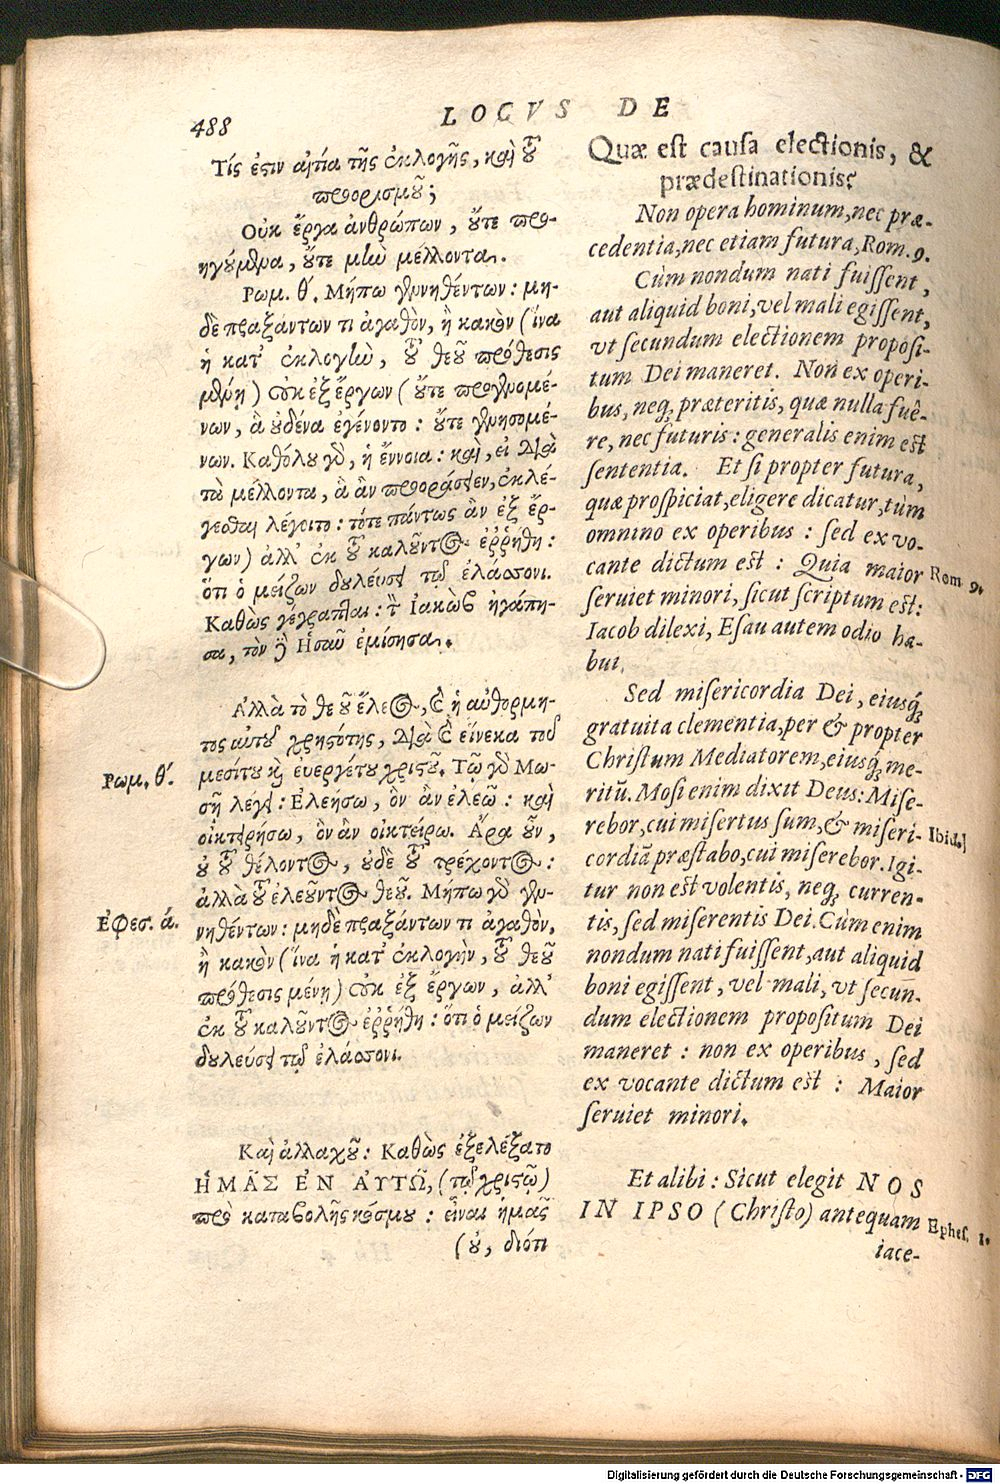 488
LOCVS DE
Τίς ἐστιν αἰτία τῆς ἐκλογῆς, καὶ τοῦ
προορισμοῦ;
Οὐκ ἔργα ἀνθρώπων, οὔτε προ-
ηγούμενα, οὔτε μὴν μέλλοντα.
Ρωμ. θ´. Μήπω γεννηθέντων: μη-
δὲ πραξάντων τι ἀγαθὸν, ἢ κακὸν (ἵνα
ἡ κατ' ἐκλογὴν, τοῦ θεοῦ πρόθεσις
μένῃ) οὐκ ἐξ ἔργων (οὔτε προγενομέ-
νων, ἃ οὐδένα ἐγένοντο: οὔτε γενησομέ-
νων. Καθόλου γὸ, ἡ ἔννοια: καὶ, εἰ διὰ
τὰ μέλλοντα, ἃ ἂν προοράσειεν, ἐκλέ-
γεσθαι λέγοιτο: τότε πάντως ἂν ἐξ ἔρ-
γων) ἀλλ' ἐκ τοῦ καλοῦντος ἐῤῥήθη:
ὅτι ὁ μείζων δουλεύσει τῷ ἐλάσσονι.
Καθὼς γέγραπται: τὸν Ἰακὼβ ἠγάπη-
σα, τὸν δὲ Ἠσαῦ ἐμίσησα.
Ἀλλὰ τὸ θεοῦ ἔλεος, καὶ ἡ αὐθορμη-
τος αὐτοῦ χρηστότης, διὰ καὶ εἵνεκα τοῦ
μεσίτου καὶ ἐυεργέτου χριστοῦ. Τῷ γὸ Μω-
Ρωμ. θ´.
σῇ λέγει: Ἐλεήσω, ὃν ἂν ἐλεῶ: καὶ
οἰκτειρήσω, ὃν ἂν οἰκτείρω. Ἄρα οὖν,
οὐ τοῦ θέλοντος, οὐδὲ τοῦ τρέχοντος:
ἀλλὰ τοῦ ἐλεοῦντος θεοῦ. Μήπω γὸ γεν-
Ἐφεσ. ά.
νηθέντων: μηδὲ πραξάντων τι ἀγαθὸν,
ἢ κακὸν (ἵνα ἡ κατ' ἐκλογὴν, τοῦ θεοῦ
πρόθεσις μένῃ) οὐκ ἐξ ἔργων, ἀλλ'
ἐκ τοῦ καλοῦντος ἐῤῥήθη: ὅτι ὁ μείζων
δουλεύσει τῷ ἐλάσσονι.
Καὶ ἀλλαχοῦ: Καθὼς ἐξελέξατο
ἩΜΑΣ ἘΝ ΑΥΤΩ, (τῷ χριστῷ)
πρὸ καταβολῆς κόσμου: εἶναι ἡμᾶς
(οὐ, διότι
Quæ est causa electionis, &
prædestinationis?
Non opera hominum, nec præ-
cedentia, nec etiam futura, Rom. 9.
Cùm nondum nati fuissent,
aut aliquid boni, vel mali egissent,
vt secundum electionem proposi-
tum Dei maneret. Non ex operi-
bus, neq; præteritis, quæ nulla fuê-
re, nec futuris: generalis enim est
sententia. Et si propter futura,
quæ prospiciat, eligere dicatur, tùm
omnino ex operibus: sed ex vo-
cante dictum est: Quia maior
Rom. 9.
seruiet minori, sicut scriptum est:
Iacob dilexi, Esau autem odio ha-
bui.
Sed misericordia Dei, eiusq́;
gratuita clementia, per & propter
Christum Mediatorem, eiusq́; me-
ritū. Mosi enim dixit Deus: Mise-
rebor, cui misertus sum, & miseri-
Ibid.]
cordiā præstabo, cui miserebor. Igi-
tur non est volentis, neq; curren-
tis, sed miserentis Dei. Cùm enim
nondum nati fuissent, aut aliquid
boni egissent, vel mali, vt secun-
dum electionem propositum Dei
maneret: non ex operibus, sed
ex vocante dictum est: Maior
seruiet minori.
Et alibi: Sicut elegit NOS
IN IPSO (Christo) antequam
Ephes. 1.
iace-
Digitalisierung gefördert durch die Deutsche Forschungsgemeinschaft - DFG